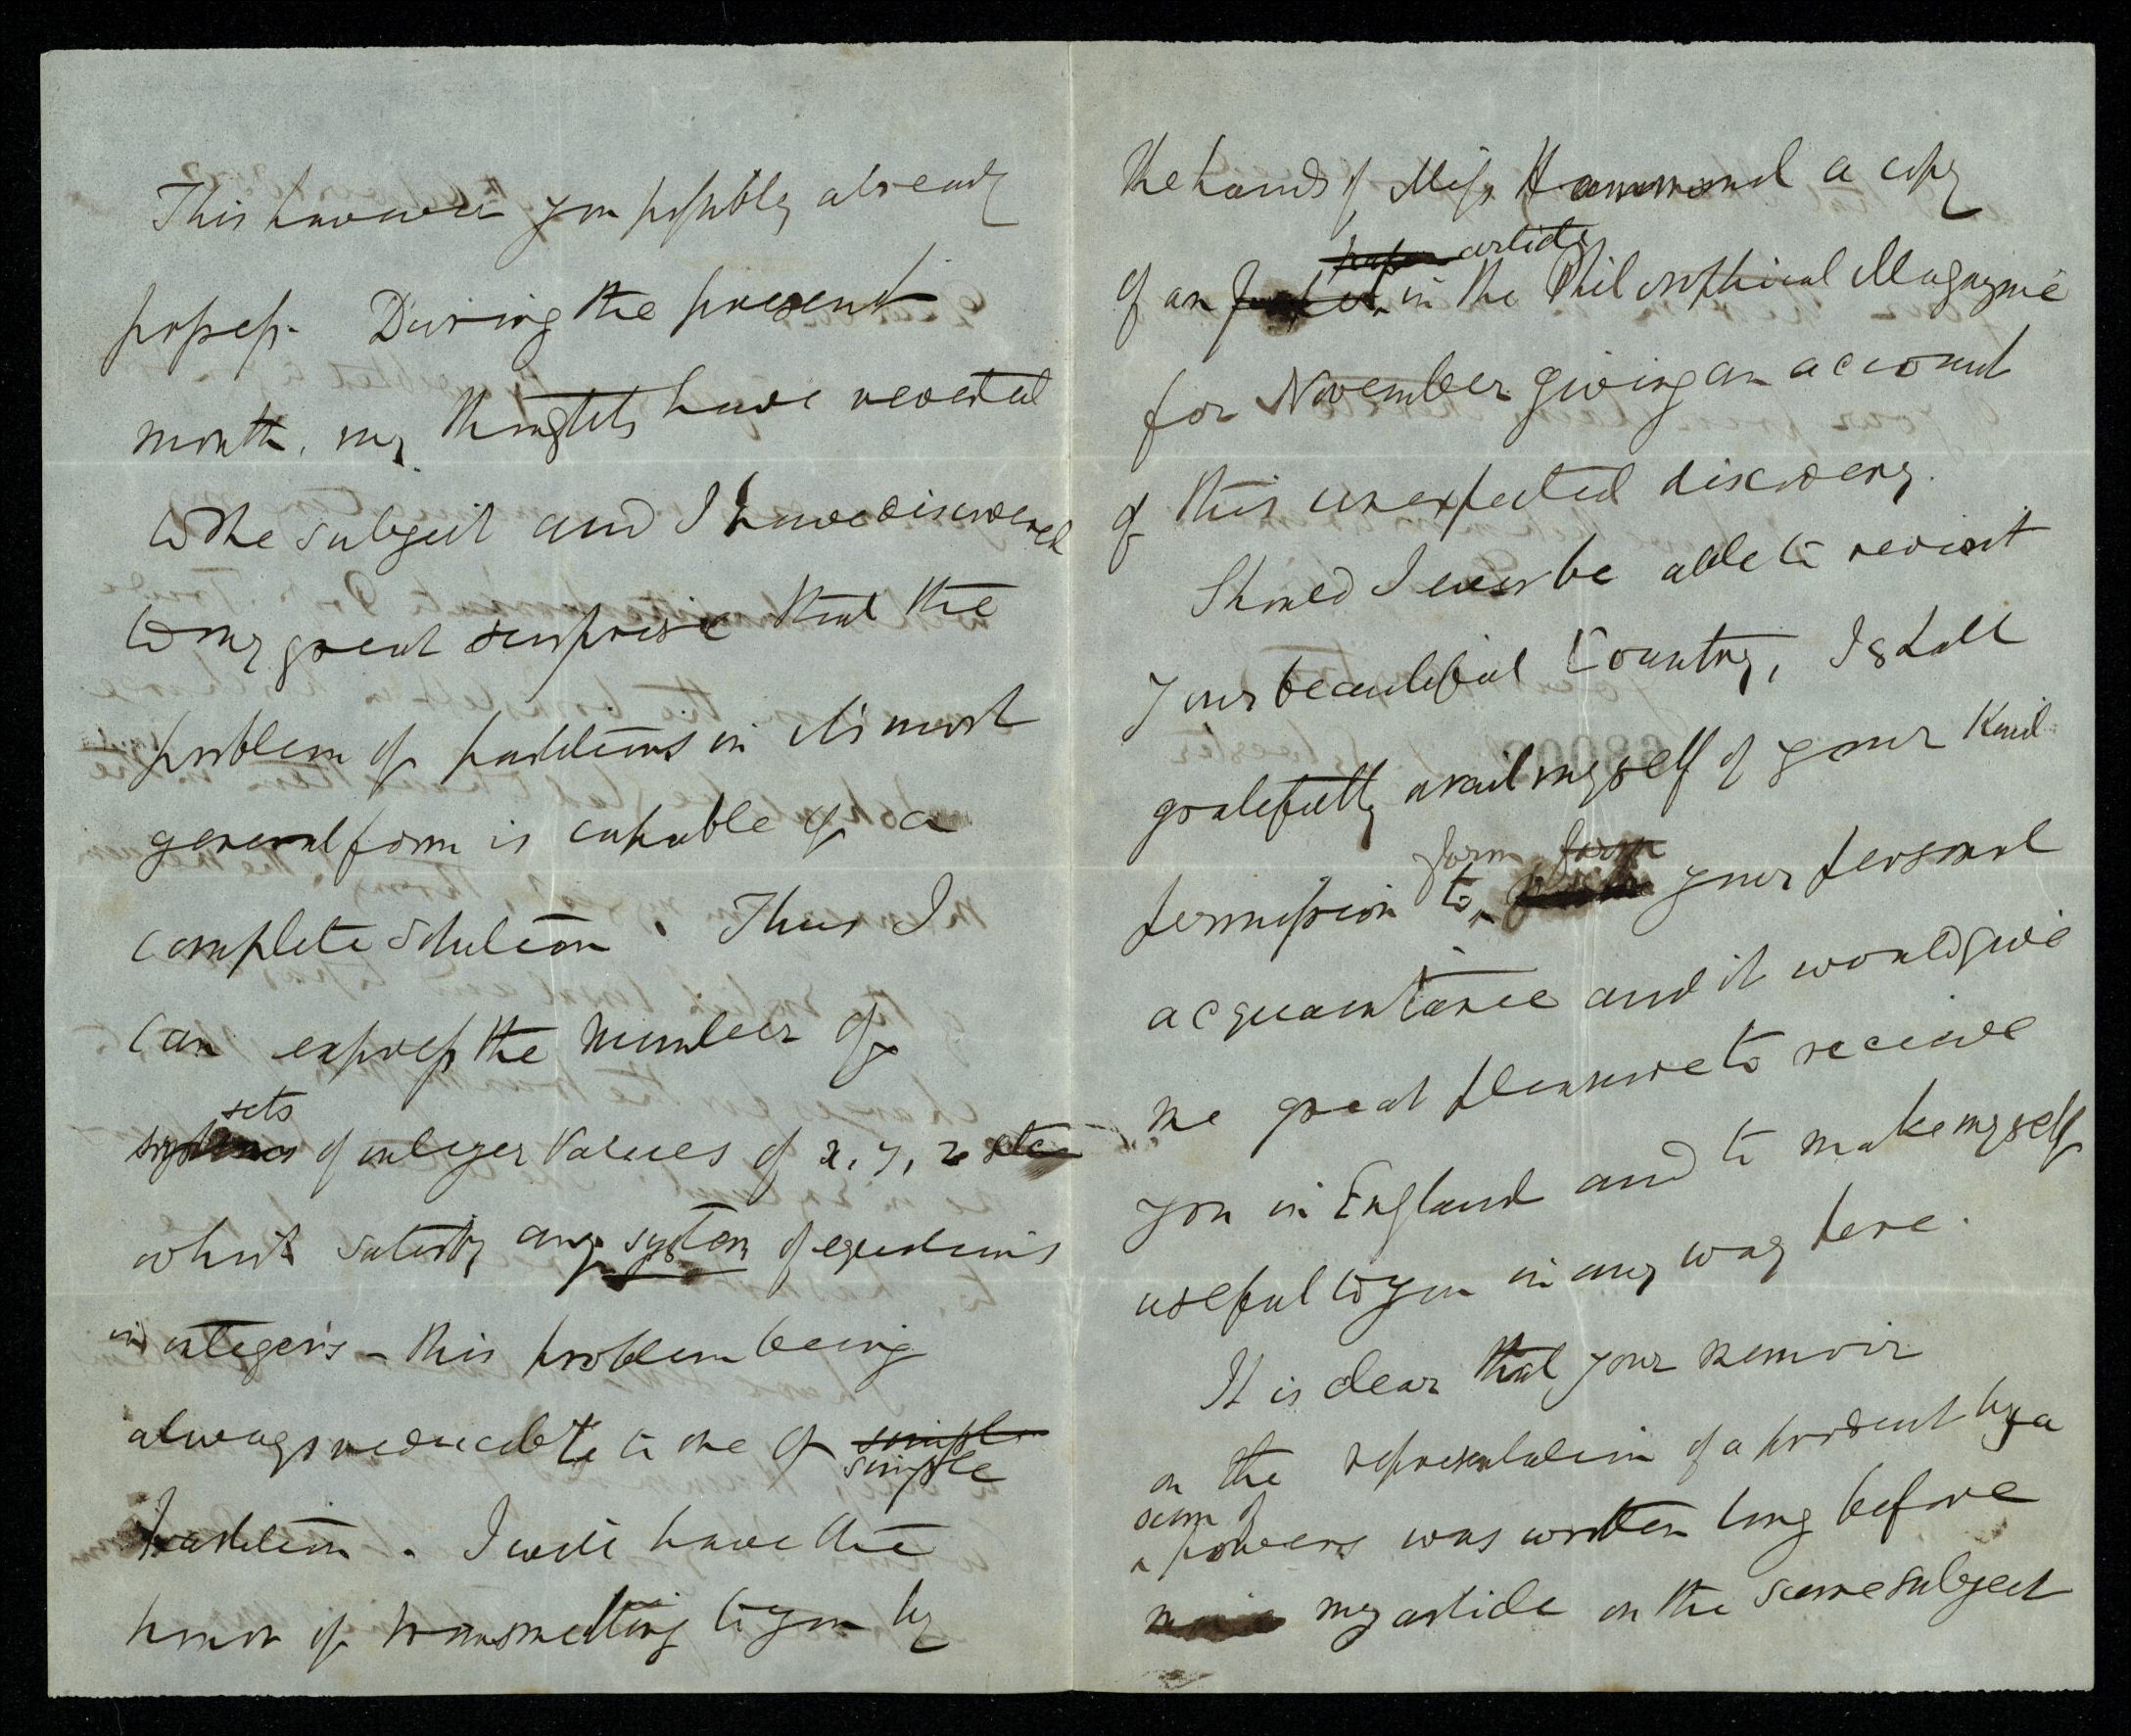 This however you possibly already
possess. During the present
month, my thoughts have reverted
to the subject and I have discovered
to my great surprise that the
problem of partitions in its most
general form is capable of a
complete solution. Thus I
can express the number of
sets
systems of integer values of x, y, z etc
which satisfy any system of equations
in integers - this problem being
always reducible to one of simple
simple
partition. I will have the
honor of transmitting to you by
the hands of Miss Hammond a copy
paper article
of an in the Philosophical Magazine
for November giving an account
of this unexpected discovery.
Should I ever be able to revisit
your beautiful Country, I shall
gratefully avail myself of your kind
form form
permission to your personal
acquaintance and it would give
me great pleasure to receive
you in England and to make myself
useful to you in any way here.
It is clear that your memoir
on the representation of a product by a
sum of
powers was written long before
my article on the same subject